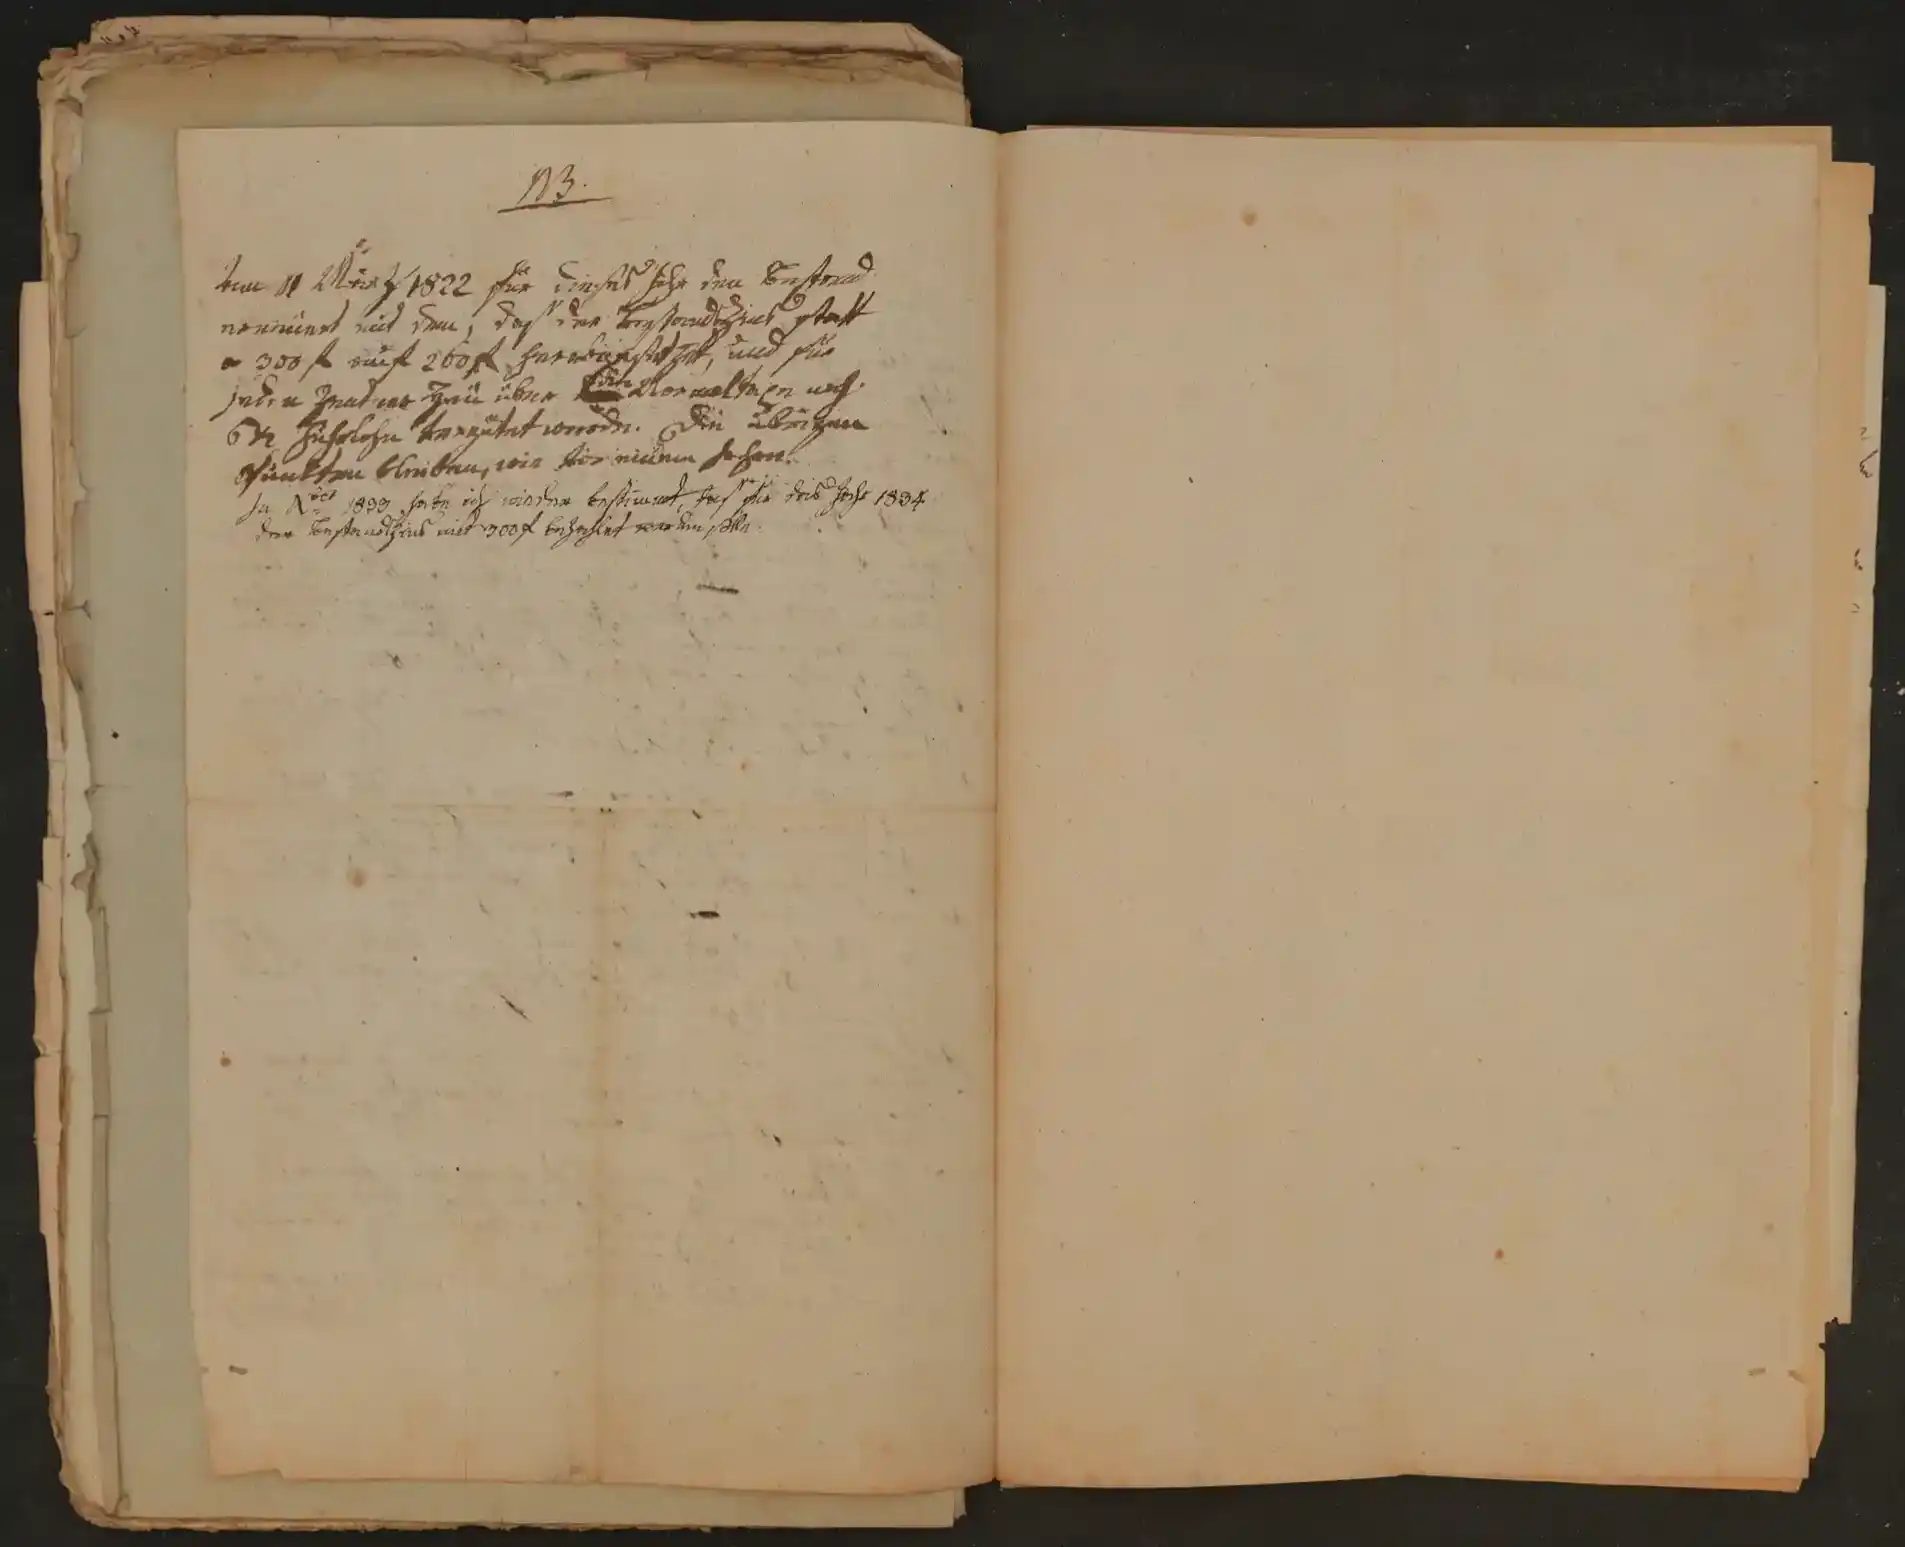 NB.
den 11 März 1822 für dieses Jahr den Bestand
erneuert mit dem, daß der Bestandzins statt
a 300 f auf 260 f herabgesetzt, und für
jeden über den
6 x Fuhrlohn vergütet werde. Die übrigen
Punkten bleiben, wie vor einem Jahre.
In Nov. 1833 habe ich wieder bestimmt, daß für das Jahr 1834
der Bestandzins mit 300 f bezahlet werden solle.